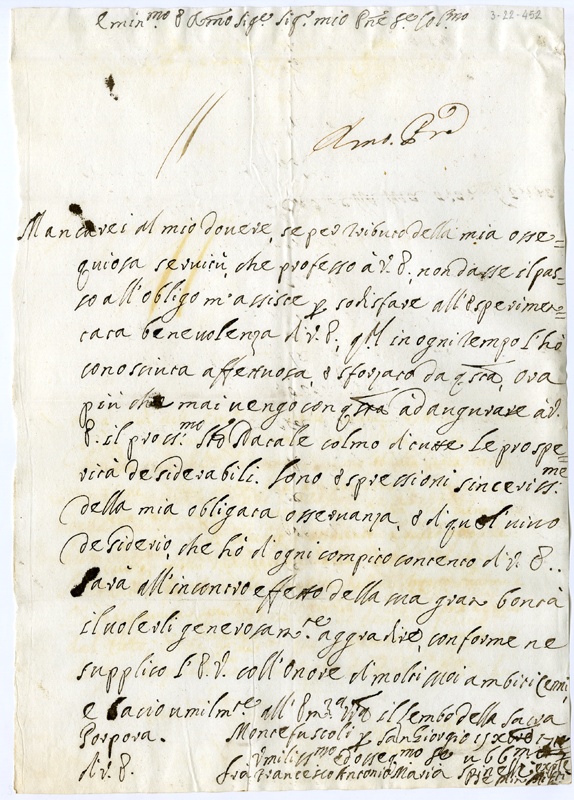 Emin.mo e R.mo Sig.e Sig.r mio P.ne Se. Col.mo
3-22-452
Mancarei al mio dovere, se per tributo della mia osse=
quiosa servitù, che professo à V. E., non dasse il pas=
so all'obligo m'assiste p sodisfare all'esperimen=
tata benevolenza di V. E., q.l in ogni tempo l'hò
conosciuta affettuosa, e sforzato da q.sta, ora
più che mai vengo con q.sta ad augurare à V.
E. il pross.mo S.to Natale colmo di tutte le prospe=
rità desiderabili. Sono espressioni sinceriss.me
della mia obligata osservanza, e di quel vivo
desiderio, che hò di ogni compito contento di V. E..
Sarà all'incontro effetto della sua gran bontà
il volerli generosam.te aggradire, conforme ne
supplico l'E. V. coll'onore di molti suoi ambiti cenni,
e bacio umilm.te all'Em.za V.ra il lembo della Sacra
Porpora. Montefuscoli p San Giorgio
di V. E. Umiliss.mo e dossec.mo se
frà Francesco Antonio Maria